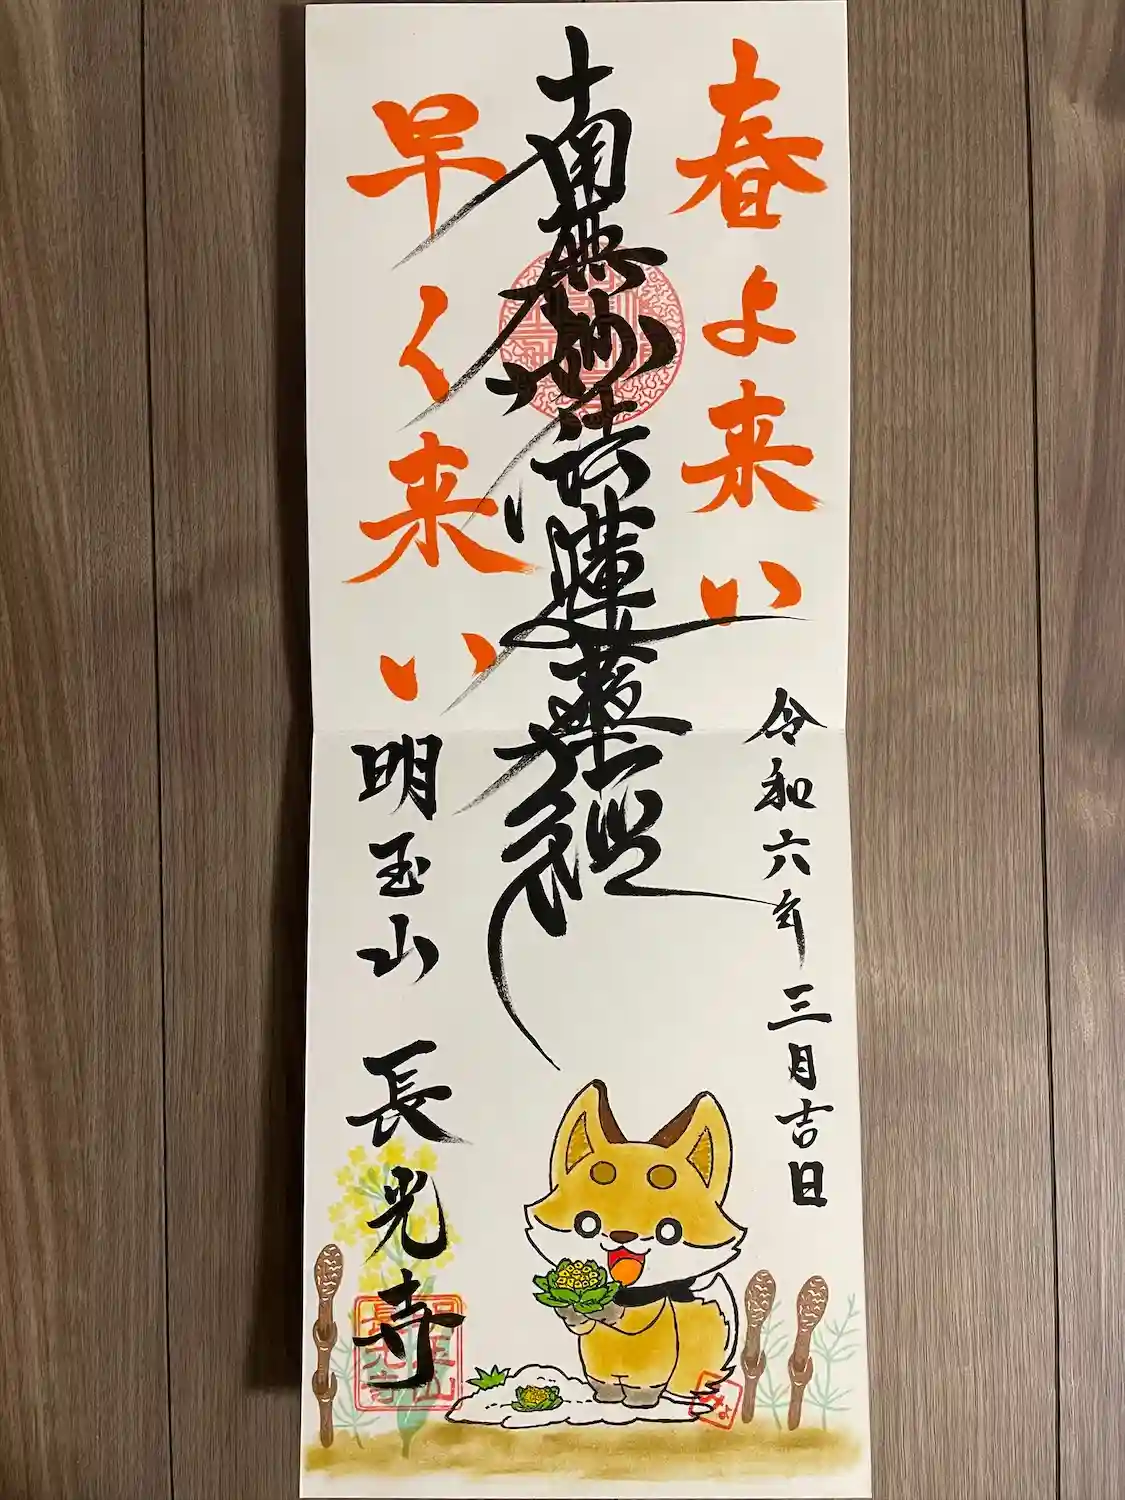 春よ来い
令和六年三月吉日
南無妙法蓮華経
早く来い
明玉山 長光寺